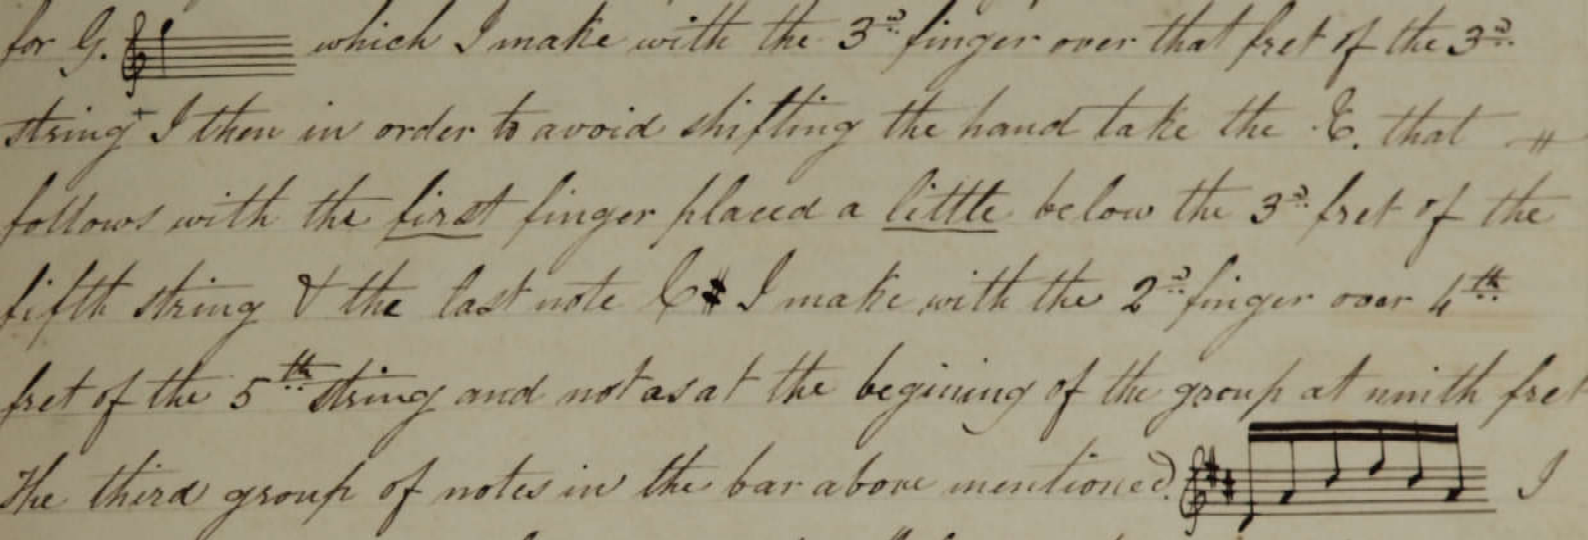 for G. which I make with the 3rd finger over that fret of the 3rd
string I then in order to avoid shifting the hand take the C. that #
follows with the first finger placed a little below the 3rd fret of the
fifth string & the last note C# I make with the 2nd finger over 4th
fret of the 5th string and not as at the begining of the group at ninth fret
The third group of notes in the bar above mentioned. I